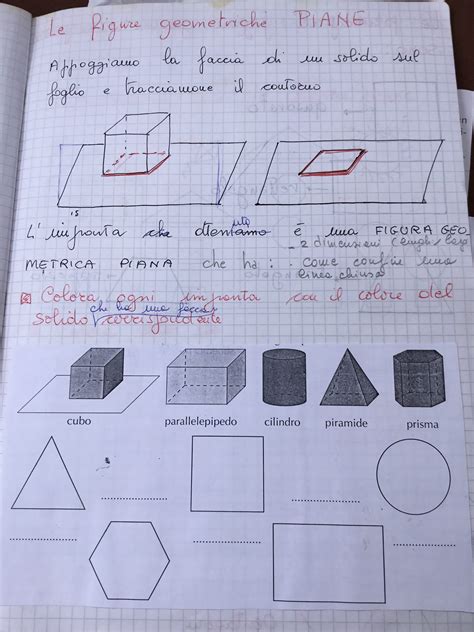 Le figure geometriche PIANE
Appoggiamo la faccia di un solido sul
foglio e tracciamone il contorno
15
L'impronta che ottenuta è una FIGURA GEO
- 2 dimensioni
METRICA PIANA che ha: . come confine una
linea chiusa
Colora ogni impronta con il colore del
che ha una faccia
solido corrispondente
cubo parallelepipedo cilindro piramide prisma